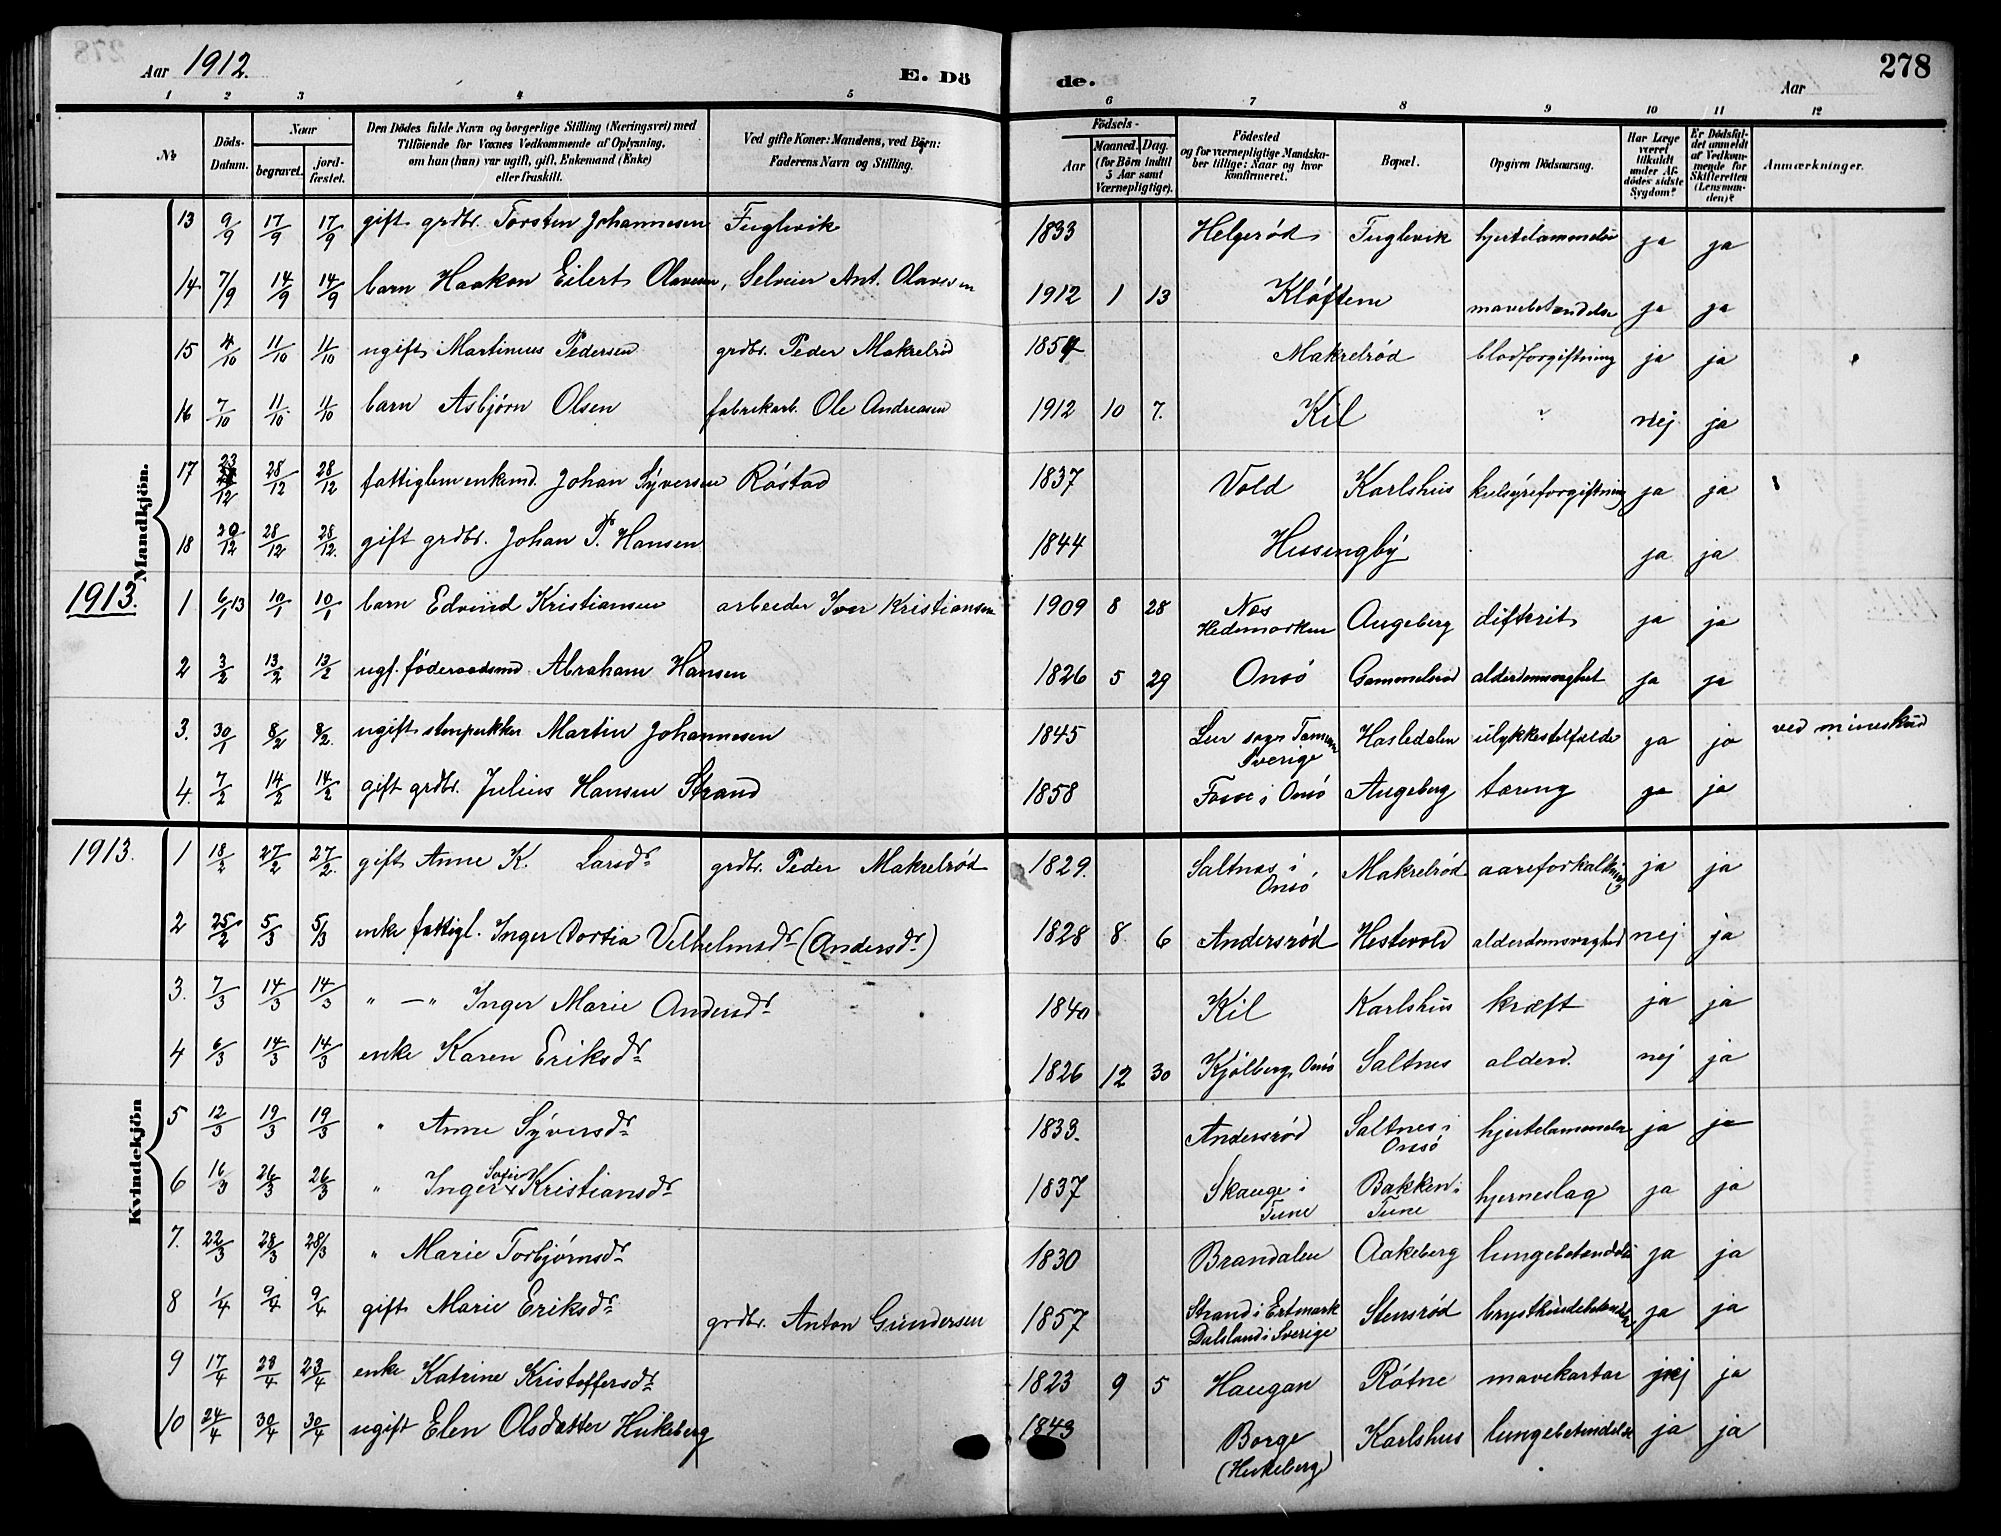 Aar 1912. E. Dö de. Aar 278
1 2 3 4 5 6 7 8 9 10 11 12
No. Döds-Datum. Naar begravet. jordfæstet. Den Dödes fulde Navn og borgerlige Stilling (Næringsvei) med Tilföiende for Voxnes Vedkommende af Oplysning, om han (hun) var ugift, gift, Enkemand (Enke) eller fraskilt. Ved gifte Koner: Mandens, ved Börn: Faderens Navn og Stilling. Födsels- Aar Maaned. Dag. (for Börn indtil 5 Aar samt Værnepligtige). Födested og for værnepligtige Mandskaber tillige: Naar og hvor konfirmeret. Bopæl. Opgiven Dödsaarsag. Har Læge været tilkaldt under Afdödes sidste Sygdom? Er Dödsfaldet anmeldt af Vedkommende for Skifteretten (Lensmanden)? Anmærkninger.
Mandkjön.
13 9/9 17/9 17/9 gift grdbr. Torsten Johannesen Fuglevik 1833 Helgerød Fuglevik ja ja
14 7/9 14/9 14/9 barn Haakon Eilert Olavesen, Selveier Ant. Olavesen 1912 1 13 Kløftene mavebetændelse ja ja
15 4/10 11/10 11/10 ugift Martinius Pedersen grdbr. Peder Makrelrød 1854 Makrelrød blodforgiftning ja ja
16 7/10 11/10 11/10 barn Asbjørn Olsen fabrikarb. Ole Andreasen 1912 10 7. Kil nej ja
17 23/12 28/12 28/12 fattiglem enkemd. Johan Syversen Råstad 1837 Vold Karlshus kulsyreforgiftning ja ja
18 20/12 28/12 28/12. gift grdbr. Johan P. Hansen 1844 Husingby ja ja
1913.
1 6/1 13 10/1 10/1 barn Edvind Kristiansen arbeider Iver Kristiansen 1909 8 28 Nes Hedemarken Augeberg difterit ja ja
2 3/2 13/2 13/2 ugf. föderaadsmd. Abraham Hansen 1826 5 29 Onsö Gammelrød alderdomssvaghet ja ja
3. 30/1 8/2 8/2. ugift stenpukker Martin Johannesen 1845 Lur sogn Sverige Hasledalen ulykkestilfælde ja ja ved mineskud
4. 7/2 14/2 14/2 gift grdbr. Julius Hansen Strand 1858 i Onsö Augeberg tæring ja ja
Kvindekjön
1913.
1 18/2 27/2 27/2. gift Anne K. Larsdr. grdbr. Peder Makrelrød 1829. Saltnes i Onsö Makrelrød aareforkalkning ja ja
2 25/2 5/3 5/3 enke fattigl. Inger Dortia Vilhelmsdr. (Andersdr.) 1828 8 6 Andersrød Hestevold alderdomsvaghed nej ja
3. 7/3 14/3 14/3 " — " Inger Marie Andersdr. 1840 Kil Karlshus kræft ja ja
4 6/3 14/3 14/3 enke Karen Eriksdr. 1826 12 30 Kjölberg, Onsö Saltnes alderd. nej ja
5 12/3 19/3 19/3 " Anne Syversdr. 1833. Andersrød Saltnes i Onsö ja ja
6 16/3 26/3 26/3 " Inger Sofie Kristiansdr. 1837 Skauge i Tune Bakken i Tune hjerneslag ja ja
7. 22/3 28/3 28/3 " Marie Torbjørnsdr. 1830 Brandalen Aakeberg lungebetændelse ja ja
8 1/4 9/4 9/4 gift Marie Eriksdr. grdbr. Anton Gundersen 1857 Strand i Ertmark Dalsland i Sverige Stensrød brysthindebetændelse ja ja
9 17/4 28/4 23/4 enke Katrine Kristoffersdr. 1823 9 5 Haugan Røtne mavekatar nej ja
10 24/4 30/4 30/4 ugift Elen Olsdatter Hukeberg 1843 Borge (Hukeberg) Karlshus lungebetændelse ja ja